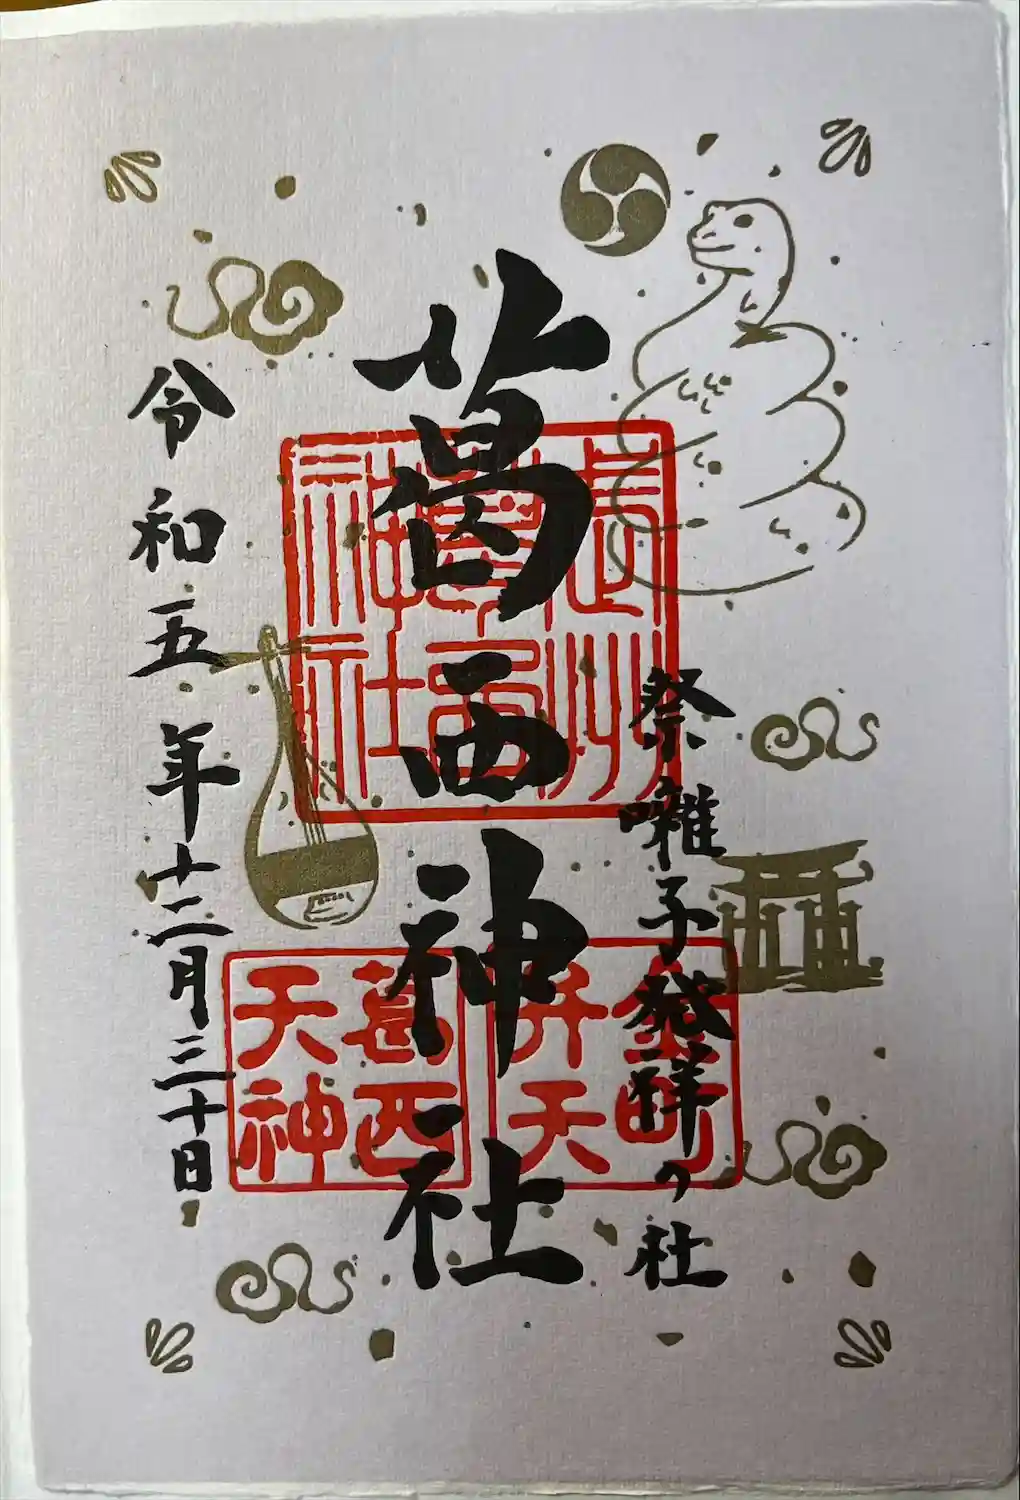 祭囃子発祥の社
葛西神社
令和五年十二月三十日
武州
葛西
神社
金町
弁天
葛西
天神